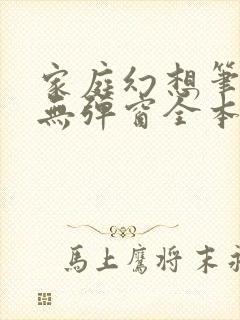 家庭幻想筆
無彈窗全本
馬上鷹將末